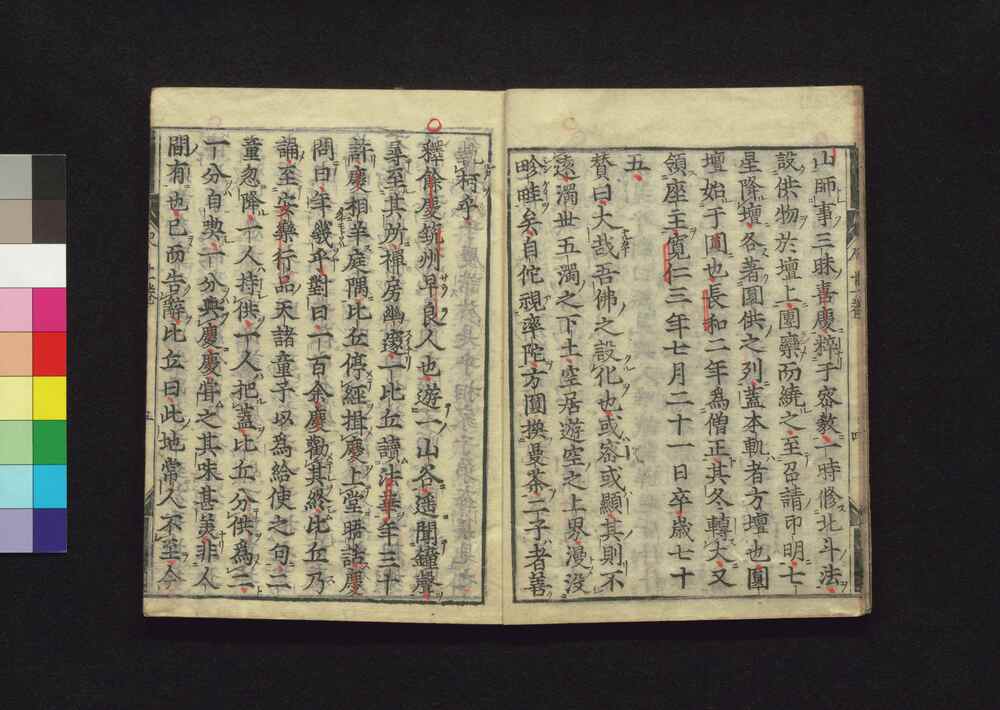 山師事三昧喜慶粹于密教一時修北斗法
設供物於壇上團欒而繞之至召請印明七
星降壇各著圓供之列蓋本軌者方壇也圓
壇始于圓也長和二年爲僧正其冬轉大又
領座主寛仁三年七月二十一日卒歳七十
五
賛曰大哉吾佛之設化也或密或顯其則不
遠濁世五濁之下土空居遊空之上界漫没
畛畦矣自佗視率陀方圓換曼荼二子者善
柯乎
釋餘慶筑州早良人也遊一山谷遙聞鐘聲
尋至其所禪房幽邃一比丘讀法華年三十
許慶相羊庭隅比丘停經揖慶上堂晤話慶
問曰年幾乎對曰一百余慶勸其終比丘乃
誦至安樂行品天諸童子以爲給使之句二
童忽降一人持供一人把蓋比丘分供爲二
一分自與一分與慶慶甞之其味甚美非人
間有也已而告辭比丘曰此地常人不至今